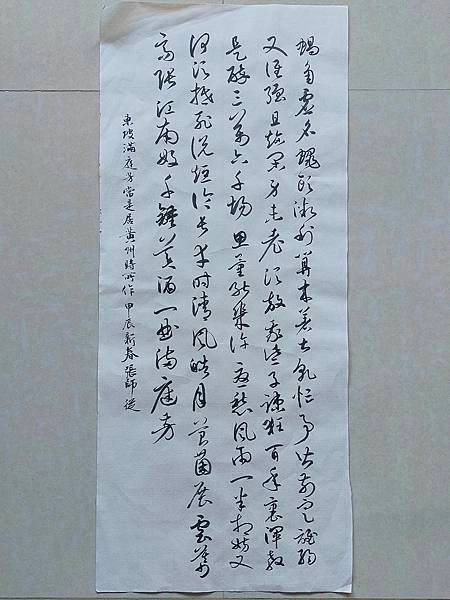 蝸角虛名蠅頭微利算來著甚乾忙事皆前定誰弱
又誰強且趁閒身未老須放我些子疎狂百年裏渾教
是醉三萬六千場思量能幾許憂愁風雨一半相妨又
何須抵死說短論長幸對清風皓月苔茵展雲幕
高張江南好千鍾美酒一曲滿庭芳
東坡滿庭芳當是居黃州時所作甲辰新春張師從